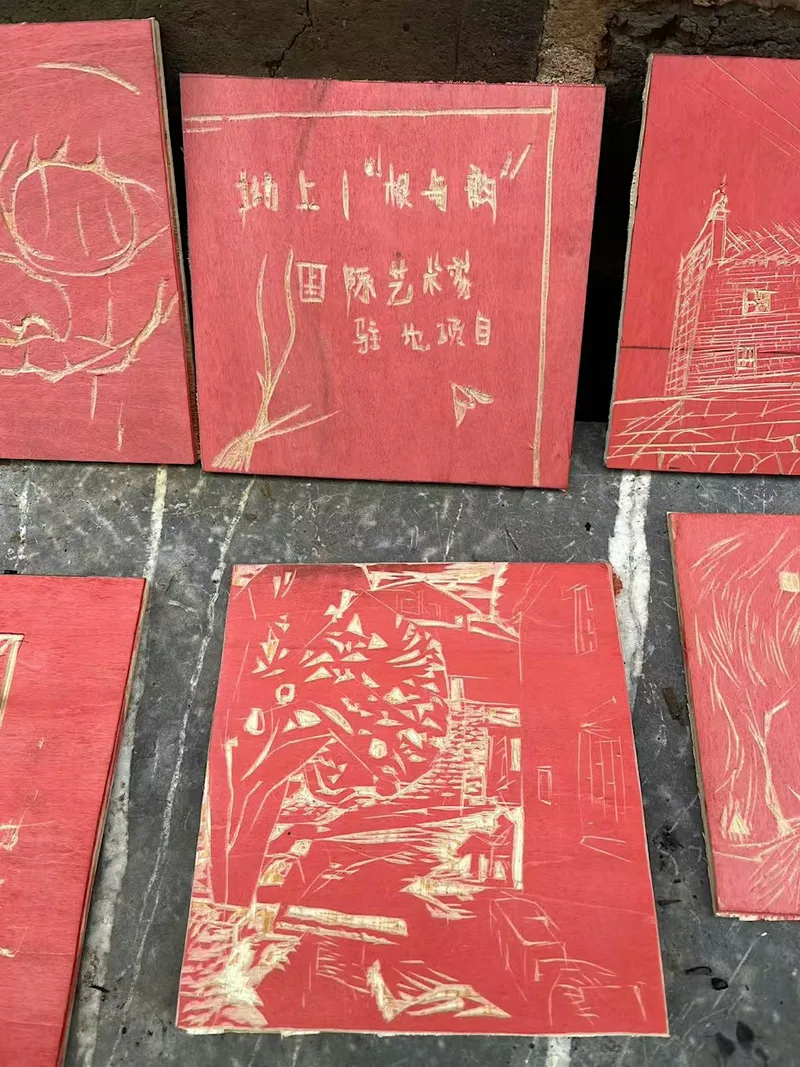 坳上|“根与韵”
国际艺术家
驻地项目